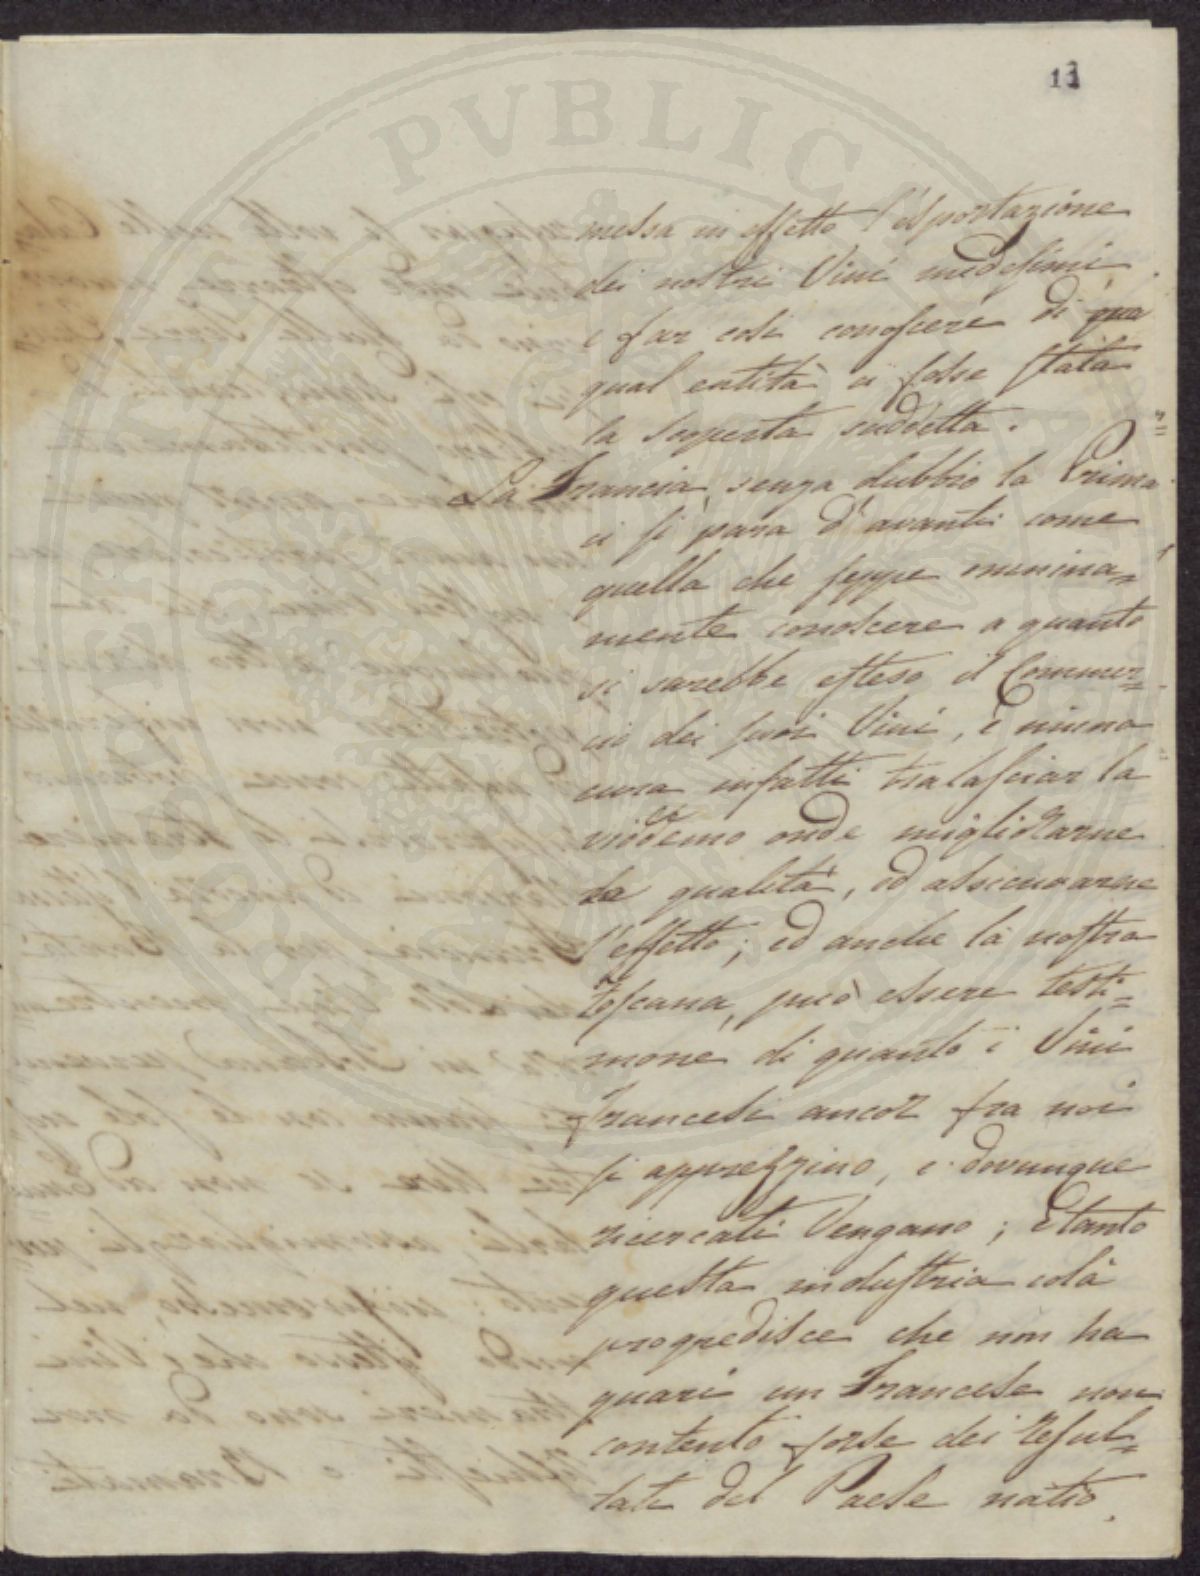 13
messa in effetto l'esportazione
dei nostri Vini medesimi
e far così conoscere di
qual entità ci fosse stata
la scoperta suddetta.
La Francia, senza dubbio la Prima
ci si para d'avanti come
quella che seppe
mente conoscere a quanto
si sarebbe esteso il Commer=
cio dei suoi Vini, e niuna
cura infatti tralasciar la
vedemo onde migliorarne
la qualità, ed assicurarne
l'effetto; ed anche la nostra
Toscana, può essere testi=
mone di quanto i Vini
francesi ancor fra noi
si apprezzino, e dovunque
ricercati Vengano; E tanto
questa industria colà
progredisce che non ha
guari un Francese non
contento forse dei resul=
tati del Paese natio,
PVBLIC